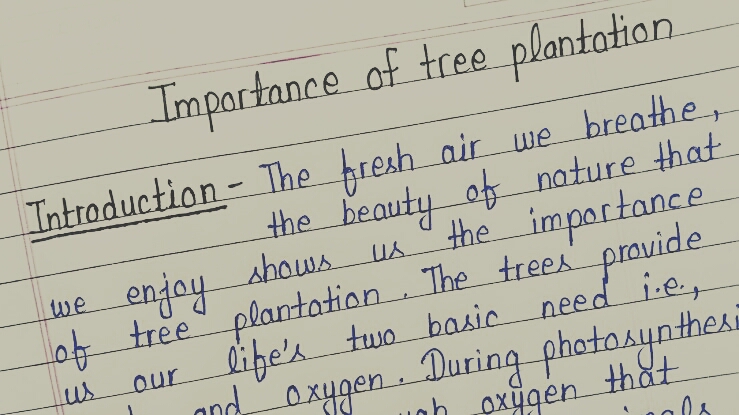 Importance of tree plantation
Introduction - The fresh air we breathe,
the beauty of nature that
we enjoy shows us the importance
of tree plantation. The trees provide
us our life's two basic need i.e.,
and oxygen. During photosynthesi
oxygen that